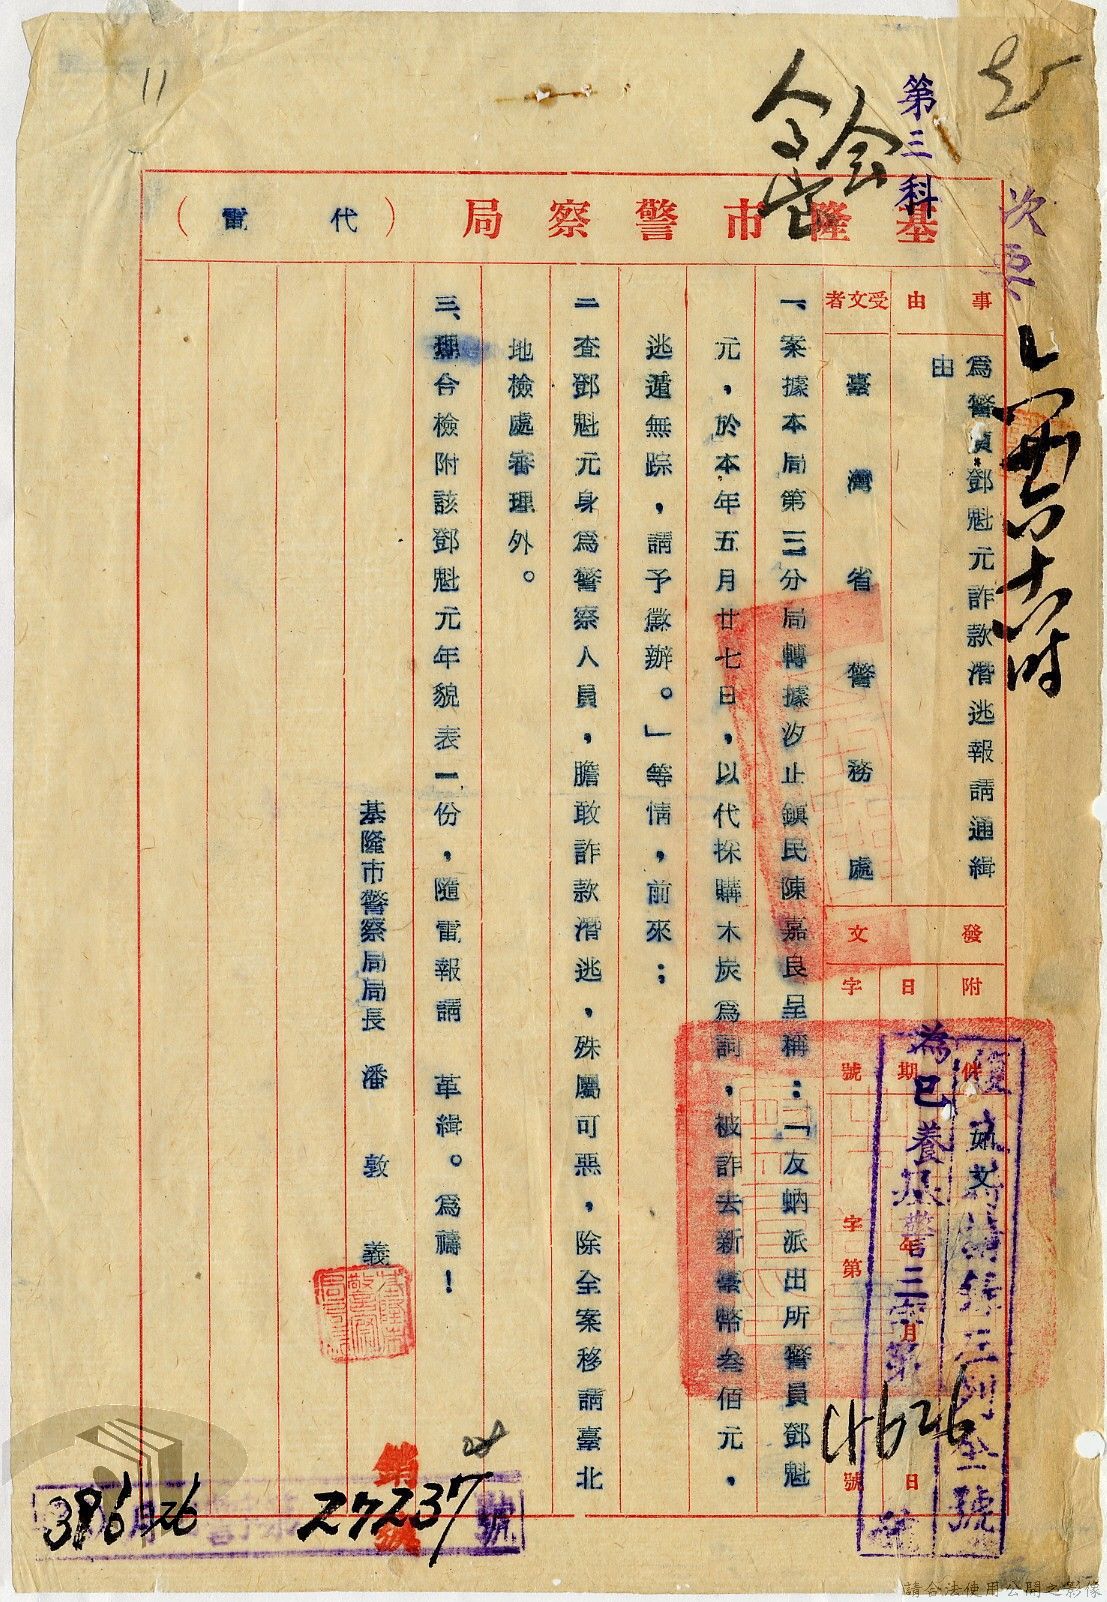 第三科
基隆市警察局
（代電）
事由
為警員鄧魁元詐款潛逃報請通緝
由
受文者
臺灣省警務處
發文
附件
如文
日期
年月日
字號
字第號
一、案據本局第三分局轉據汐止鎮民陳嘉良呈稱：「友蚋派出所警員鄧魁
元，於本年五月廿七日，以代採購木炭為詞，被詐去新臺幣叁佰元，
逃遁無踪，請予懲辦。」等情，前來；
二查鄧魁元身為警察人員，膽敢詐款潛逃，殊屬可惡，除全案移請臺北
地檢處審理外。
三、理合檢附該鄧魁元年貌表一份，隨電報請　革緝。為禱！
基隆市警察局局長　潘敦義
巳養基警三字第
號
386
26
27237
第
號
11
請合法使用公開之影像